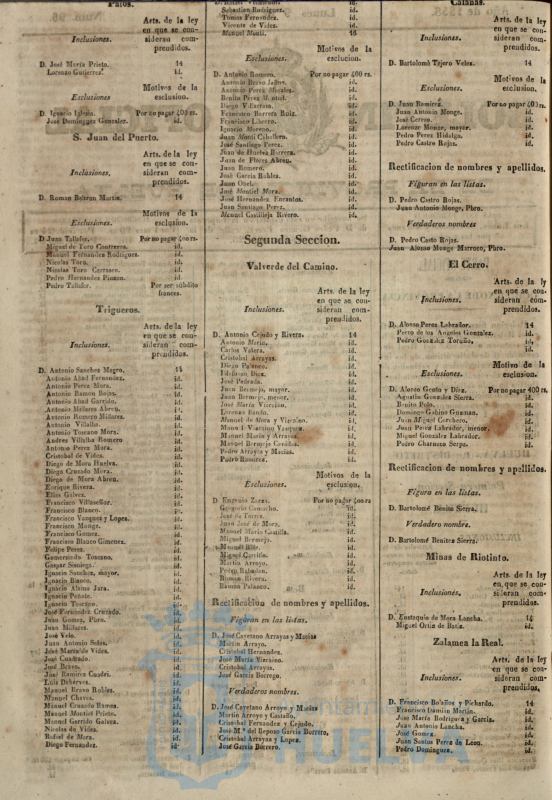 Palos.
Arts. de la ley
en que se con-
Inclusiones. sideran com-
prendidos.
D. José María Prieto. 14
Lorenzo Gutierrez. id.
Motivos de la
Esclusiones esclusion.
D. Ignacio Iglesia. Por no pagar 400 rs.
José Dominguez Gonzalez. id.
S. Juan del Puerto.
Arts. de la ley
en que se con-
Inclusiones. sideran com-
prendidos.
D. Roman Beltran Martin. 14
Motivos de la
Esclusiones. esclusion.
D Juan Tallafer. Por no pagar 400 rs.
Miguel de Toro Contreras. id.
Manuel Fernandez Rodriguez. id.
Nicolas Toro. id.
Nicolas Toro Carrasco. id.
Pedro Hernandez Pinzon. id.
Pedro Tallafer. Por ser súbdito
frances.
Trigueros.
Arts. de la ley
en que se con-
Inclusiones. sideran com-
prendidos.
D. Antonio Sanchez Magro. 14
Antonio Abad Fernandez. id.
Antonio Perez Mora. id.
Antonio Ramon Rojas. id.
Antonio Abad Garrido. id.
Antonio Millares Abreu. id.
Antonio Romero Millares. id.
Antonio Villalba. id.
Antonio Toscano Mora. id.
Andres Villalba Romero id.
Antonio Perez Mora. id.
Cristobal de Vides. id.
Diego de Mora Huelva. id.
Diego Cruzado Mora. id.
Diego de Mora Abreu. id.
Enrique Rivera. id.
Elias Galvez. id.
Francisco Villaseñor. id.
Francisco Blanco. id.
Francisco Vazquez y Lopez. id.
Francisco Monge. id.
Francisco Gomez. id.
Francisco Blanco Gimenez. id.
Felipe Perez. id.
Gumersindo Toscano. id.
Gaspar Saniega. id.
Ignacio Sanchez, mayor. id.
Ignacio Blanco. id.
Ignacio Alame Jara. id.
Ignacio Penate. id.
Ignacio Toscano. id.
José Fernandez Cruzado. id.
Juan Gomez, Pbro. id.
Juan Millares. id.
José Velo. id.
Juan Antonio Soles. id.
José Maria de Vides. id.
José Cuadrado. id.
José Bravo. id.
José Ramirez Cuadri. id.
Luis Deherves. id.
Manuel Bravo Robles. id.
Manuel Chaves. id.
Manuel Cruzado Ramos. id.
Manuel Montiel Prieto. id.
Manuel Garrido Galvez. id.
Nicolas de Vides. id.
Rafael de Mora. id.
Diego Fernandez. id.
id.
Sebastian Rodriguez. id.
Tomas Fernandez. id.
Vicente de Vides. id.
Manuel Monti. 16
Motivos de la
Esclusiones. esclucion.
D. Antonio Romero. Por no pagar 400 rs.
Antonio Bravo id.
Antonio Perez Morales. id.
Benito Perez id.
Diego Villaseran. id.
Francisco Barrera Ruiz. id.
Francisco Librero. id.
Ignacio Moreno. id.
Juan Monti Caballero. id.
José Santiago Perez. id.
Juan de Huelva Barrera. id.
Juan de Flores Abreu. id.
Juan Romero. id.
José Garcia Robles. id.
Juan id.
José Montiel Mora. id.
José Hernandez Encantos. id.
Juan Santiago Perez. id.
Manuel Castilleja Rivero. id.
Segunda Seccion.
Valverde del Camino.
Arts. de la ley
en que se con-
Inclusiones. sideran com-
prendidos.
D. Antonio Cejudo y Rivera. 14
Antonio Marin. id.
Carlos Valera. id.
Cristobal Arrayas. id.
Diego Palanco. id.
Ildefonso Diaz. id.
José Pedrada. id.
Juan Bermejo, mayor. id.
Juan Bermejo, menor. id.
José Maria Vizcaino. id.
Lorenzo Bando. id.
Manuel de Mora y Vizcaino. id.
Manuel Vizcaino Vazquez. id.
Manuel Marin y Arrayas. id.
Manuel Bermejo Cenilla. id.
Pedro Arrayas y Macias. id.
Pedro Ramirez. id.
Motivos de la
Esclusiones. esclusion.
D Eugenio Zarza. Por no pagar 400 rs
Gregorio Camacho. id.
José de Torres. id.
Juan José de Mora. id.
Manuel Marin Castilla. id.
Miguel Bermejo. id.
Manuel id.
Miguel Carrion. id.
Martin Arroyo. id.
Pedro Rabadan. id.
Ramon Rivera. id.
Ramon Palanco. id.
Rectificacion de nombres y apellidos.
Figuran en las listas.
D. José Cayetano Arrayas y Macias
Martin Arroyo.
Cristobal Hernandez.
José Maria Vizcaino.
Cristobal Arrayas.
José Garcia Borrego.
Verdaderos nombres.
D. José Cayetano Arroyo y Macias
Martin Arroyo y Castaño.
Cristobal Fernandez y Cejudo.
José M.ª del Reposo Garcia Borrero,
Cristobal Arrayas y Lopez
José Garcia Borrero.
Calañas.
Arts. de la ley
en que se con-
Inclusiones. sideran com-
prendidos.
D. Bartolomé Tejero Velez. 14
Motivos de la
Esclusiones. esclusion.
D. Juan Ramirez. Por no pagar 400 rs.
Juan Antonio Monge. id.
José Correa. id.
Lorenzo Monge, mayor. id.
Pedro Perez Hidalgo. id.
Pedro Castro Rojas. id.
Rectificacion de nombres y apellidos.
Figuran en las listas.
D. Pedro Castro Rojas.
Juan Antonio Monge, Pbro.
Verdaderos nombres
D. Pedro Casto Rojas.
Juan Alonso Monge Marroco, Pbro.
El Cerro.
Arts. de la ly
en que se con-
Inclusiones. sideran com-
prendidos.
D. Alonso Perez Labrador. 14
Pedro de los Angeles Gonzalez. id.
Pedro Gonzalez Toruño, id.
Motivo de la
Esclusiones. esclusion.
D. Alonso Gento y Diez. Por no pagar 400 rs.
Agustin Gonzalez Sierra. id.
Benito Polo. id.
Domingo Gabino Guzman. id.
Juan Miguel Corchero. id.
Juan Perez Labrador, menor. id.
Miguel Gonzalez Labrador. id.
Pedro Charneco Serpo. id.
Rectificacion de nombres y apellidos.
Figura en las listas.
D. Bartolomé Benito Sierra.
Verdadero nombre.
D. Bartolomé Benitez Sierra.
Minas de Riotinto.
Arts. de la ley
en que se con-
Inclusiones. sideran com-
prendidos.
D. Eustaquio de Mora Lancha. 14
Miguel Ortiz de Batia. id.
Zalamea la Real.
Arts. de la ley
en que se con-
Inclusiones. sideran com-
prendidos,
D. Francisco Bolaños y Pichardo. 14
Francisco Damian Martin. id.
José Maria Rodriguez y Garcia. id.
Juan Antonio Lancha. id.
José Gomez. id.
Juan Santos Perez de Leon. id.
Pedro Dominguez. id.
HUELVA